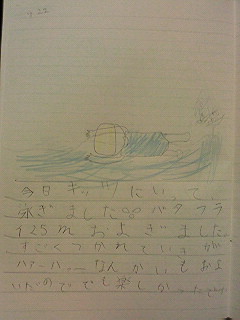 今日キッツにいって、
泳ぎました。バタフラ
イ25mおよぎました。
すごくつかれていきが
ハァーハァーなんかいもおよ
いだのでも楽しか